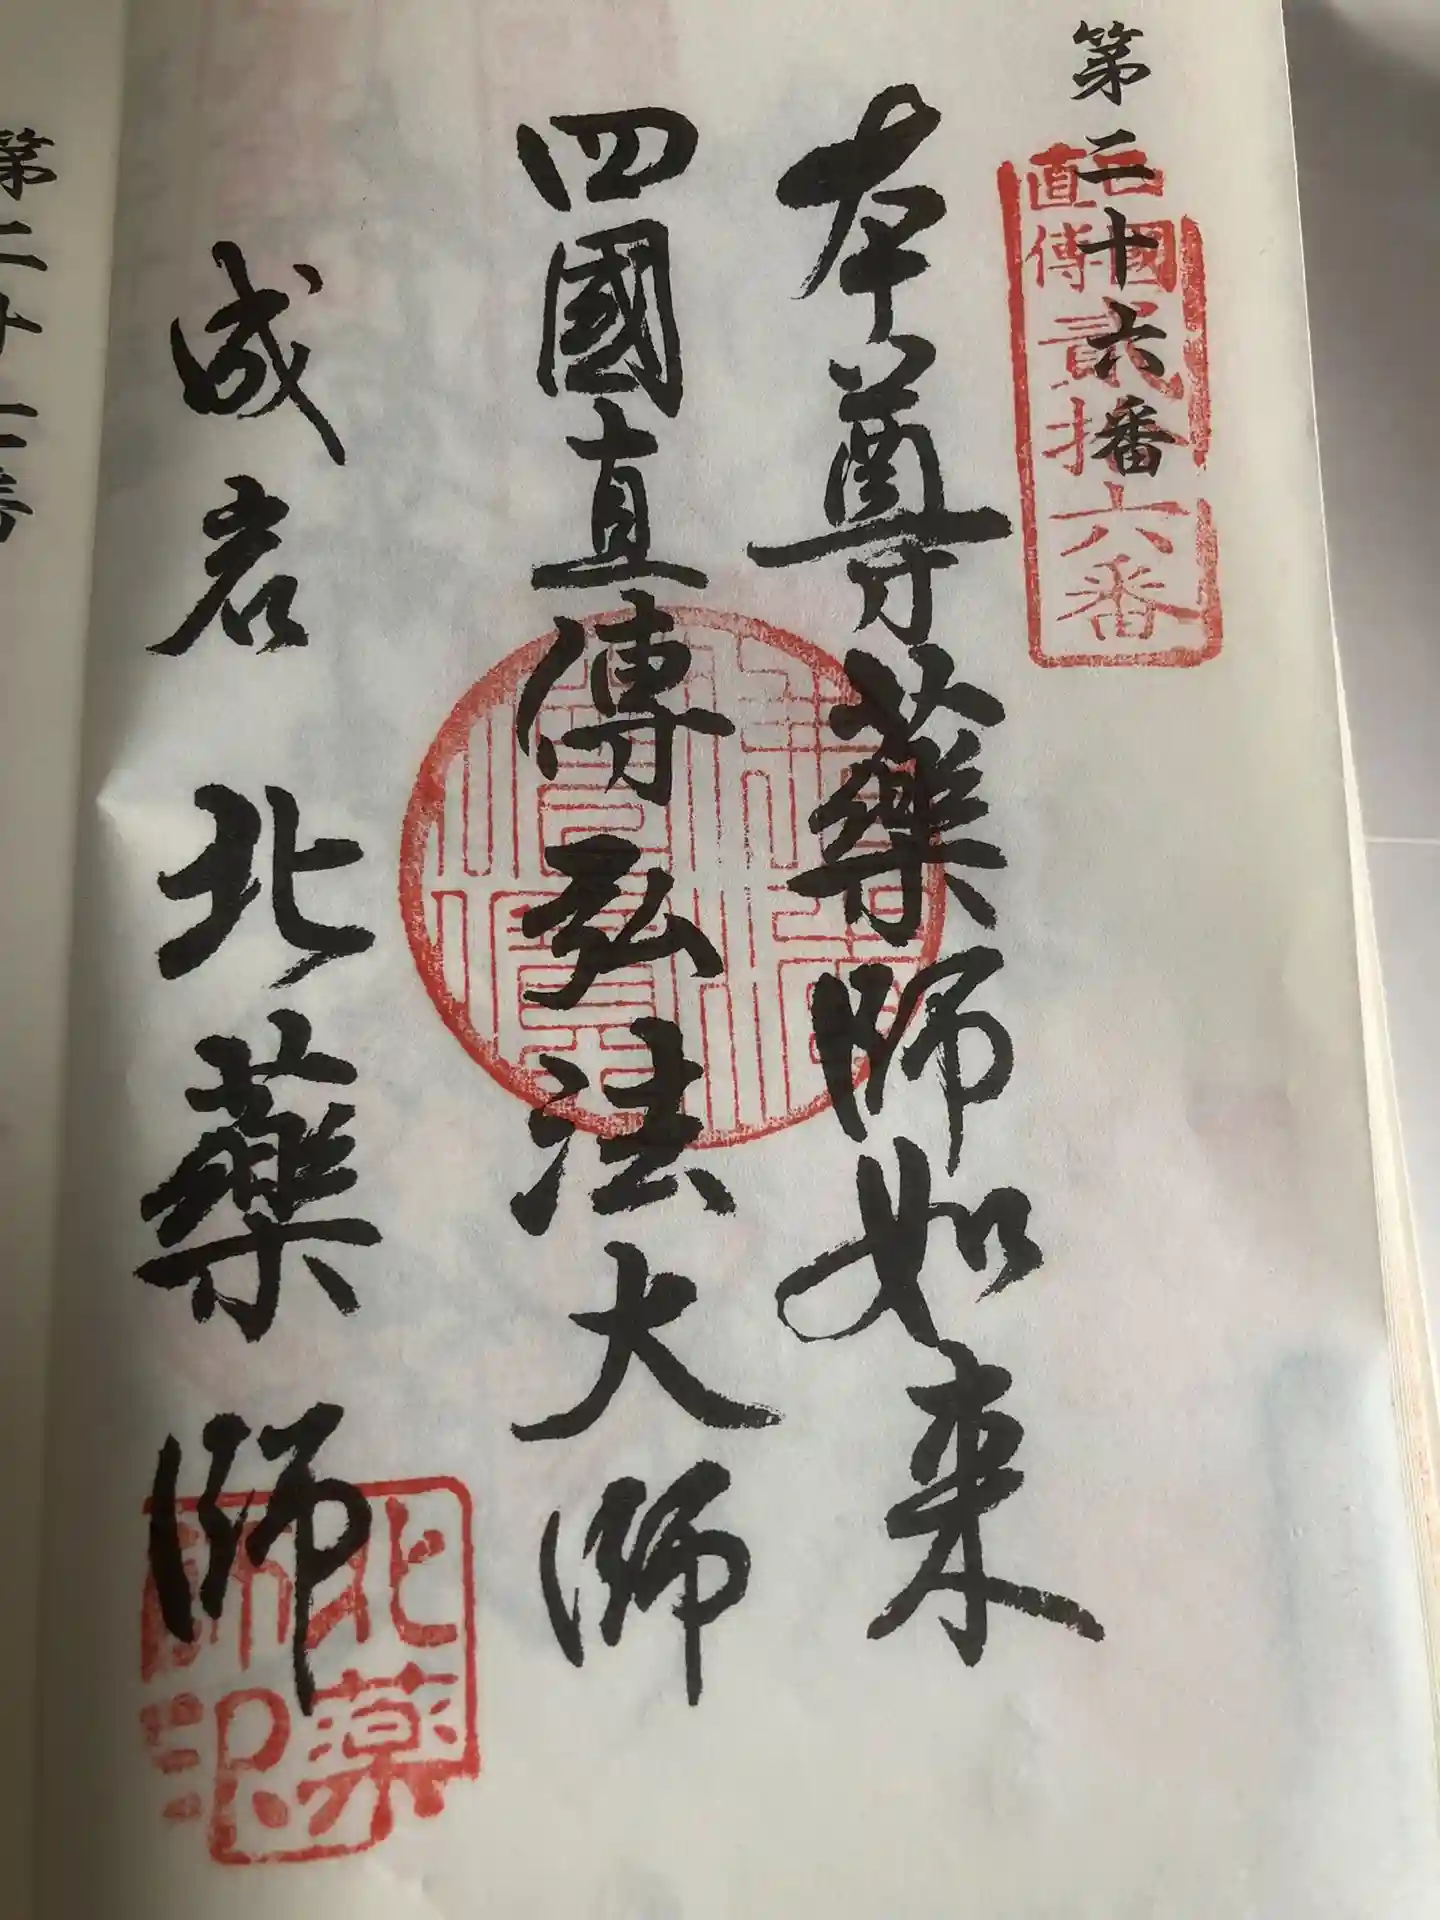 第二十六番
四國直傳
貳拾六番
本尊薬師如来
四國直傳弘法大師
成君北薬師
北薬師印